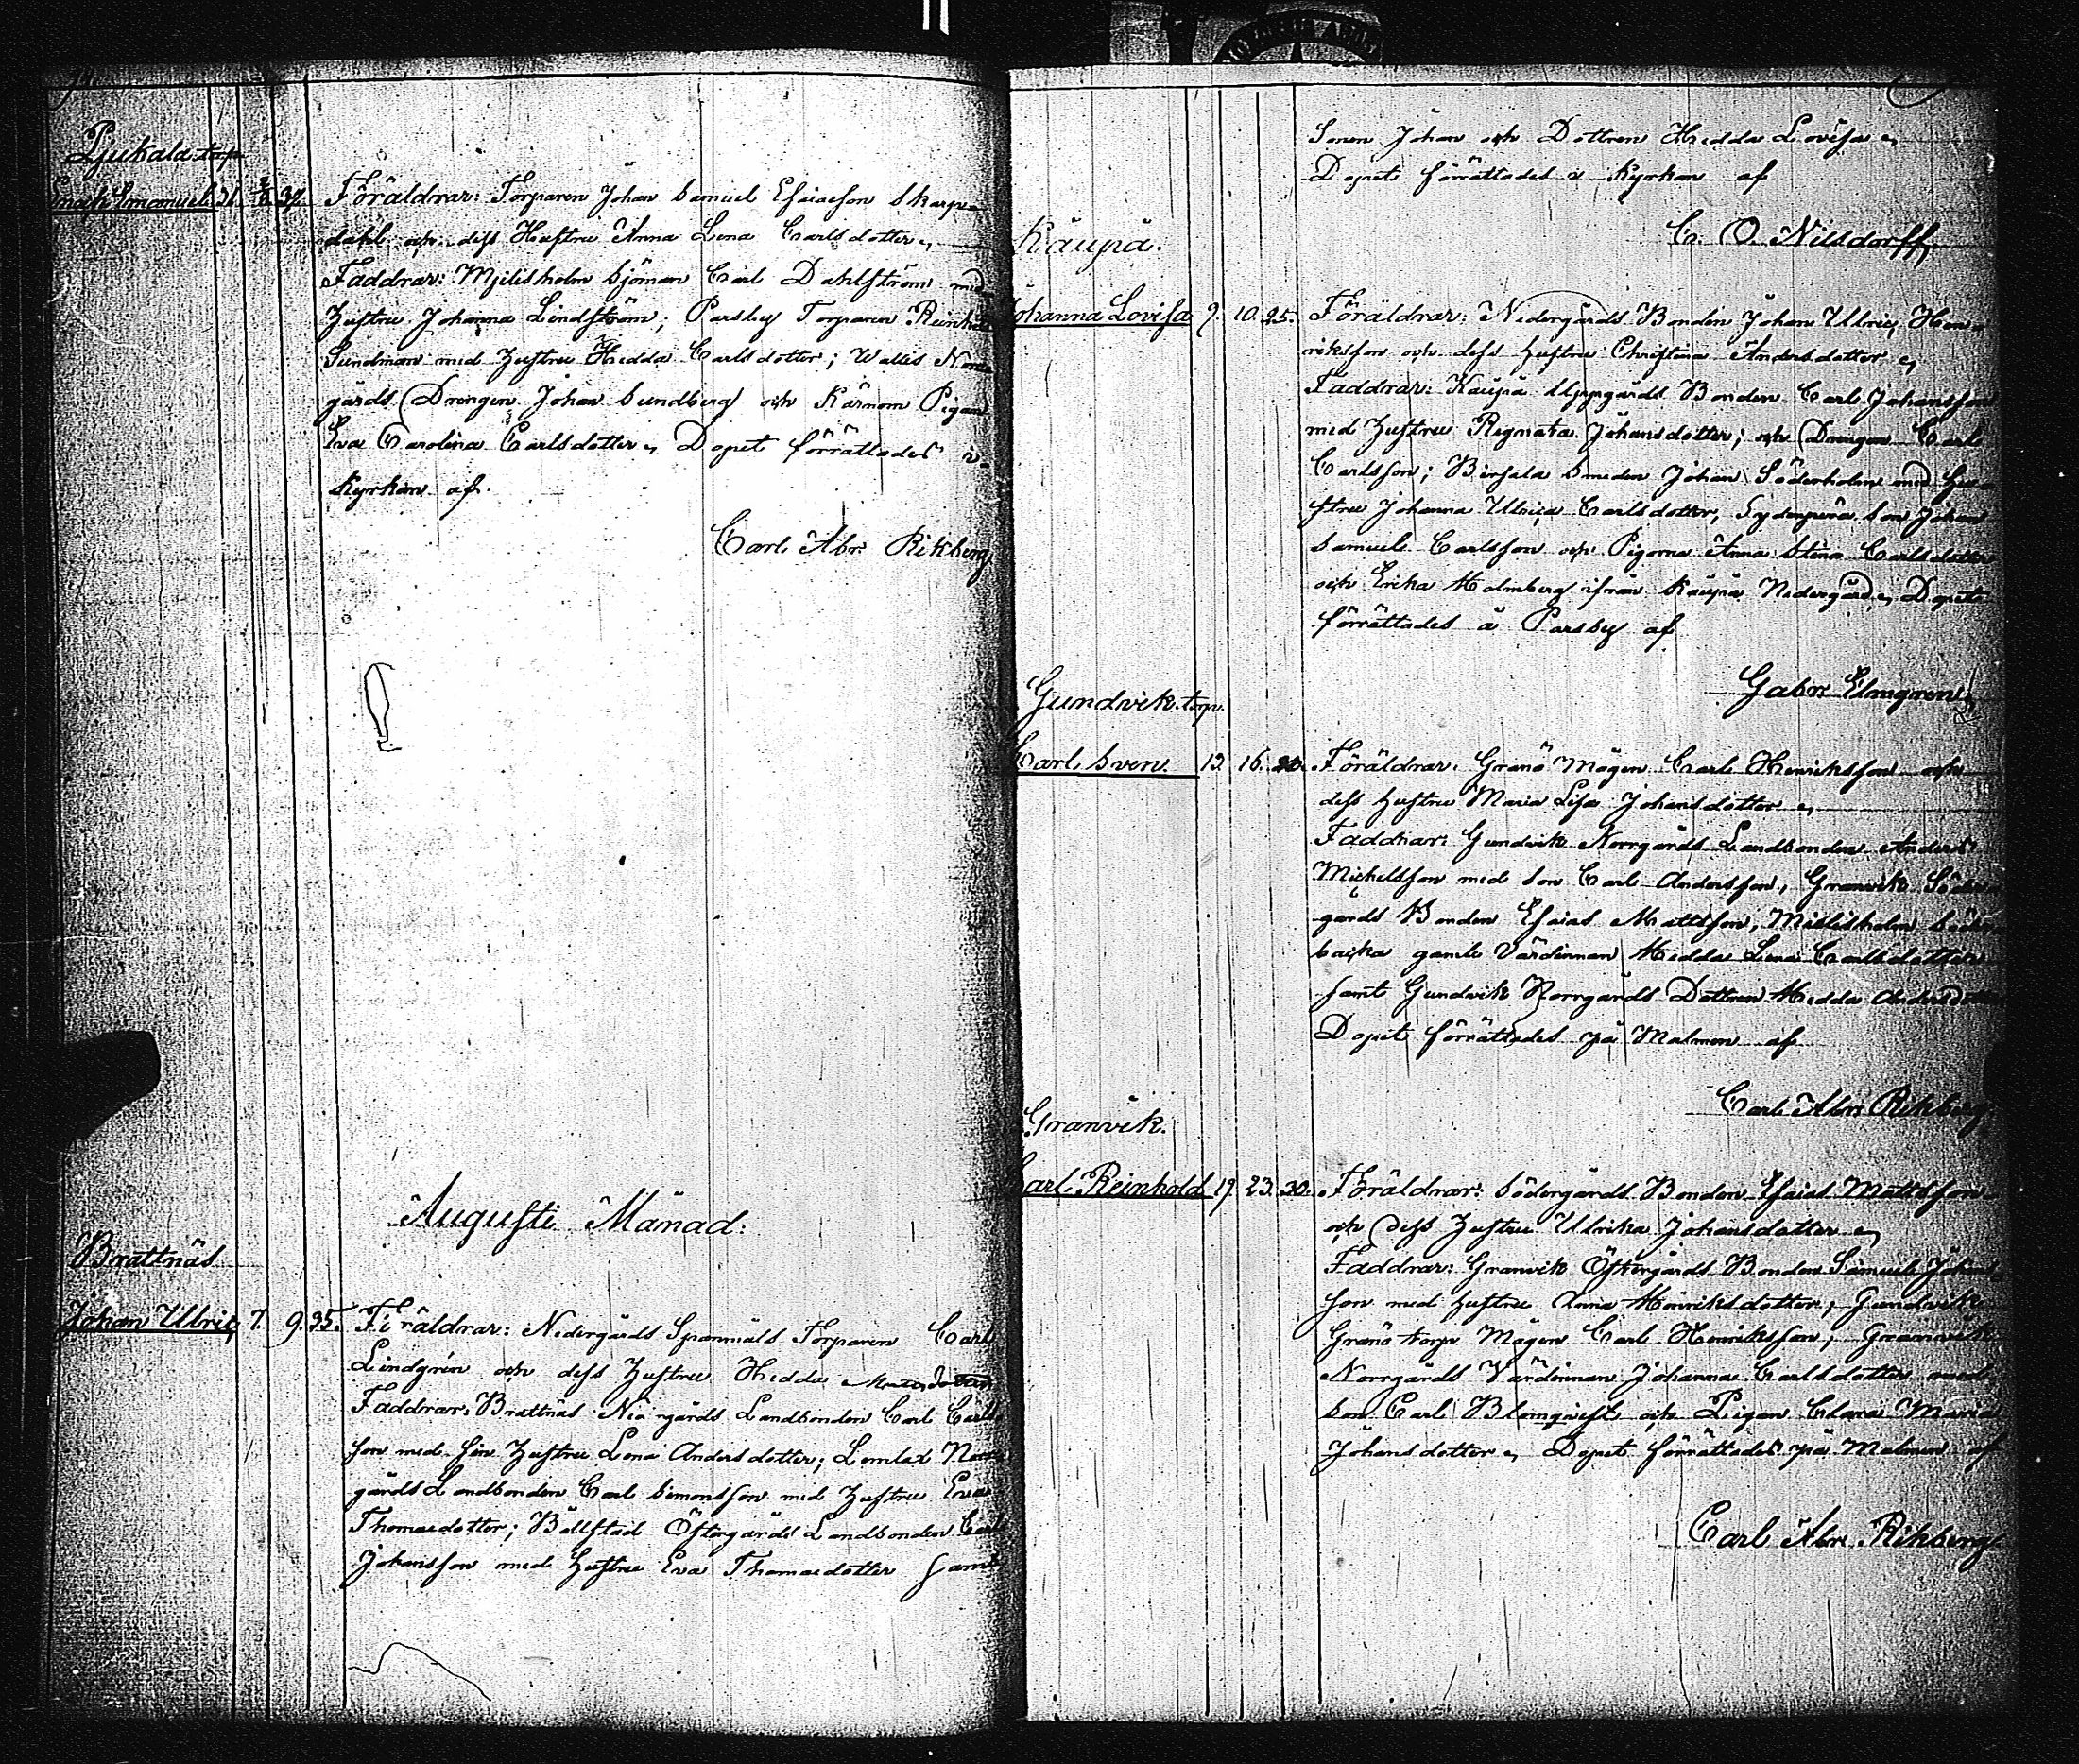 Pjukala torp
Enoch Emanuel 31. 37. Föräldrar: Torparen Johan Samuel Esaiasson Skarp-
dahl och dess Hustru Anna Lena Carlsdotter,
Faddrar: Mjelisholm Sjöman Carl Dahlström med
Hustru Johanna Lindström; Parsby Torparen Reinhold
Sundman med Hustru Hedda Carlsdotter; Wallis Norr
gårds Drengen Johan Sundberg och Kärnom Pigan
Eva Carolina Carlsdotter, Dopet förrättades i
Kyrkan af
Carl Abr. Rikberg
Augusti Månad:
Brattnäs
Johan Ulric 7. 9. 35. Föräldrar: Nedergårds Torparen Carl
Lindgrén och dess Hustru Hedda
Faddrar: Brattnäs Nia gårds Landbonden Carl Carls
son med sin Hustru Lena Andersdotter; Lemlax Norr
gårds Landbonden Carl Simonsson med Hustru Eva
Thomasdotter; Bollstad Östergårds Landbonden Carl
Johansson med Hustru Eva Thomasdotter samt
Sonen Johan och Dottren Hedda Lovisa,
Dopet förrättades i Kyrkan af
C. O. Nilsdorff,
Kaupa.
Johanna Lovisa 9. 10. 25. Föräldrar: Nedergårds Bonden Johan Ulric Hen-
riksson och dess hustru Christina Andersdotter,
Faddrar: Kaupa Uppgårds Bonden Carl Johansson
med Hustru Regnata Johansdotter; och Drengen Carl
Carlsson; Smeden Johan Söderholm med Hu-
stru Johanna Ulrica Carlsdotter, Sydenperä Son Johan
Samuel Carlsson och Pigorna Anna Stina Carlsdotter
och Erika Holmberg ifrån Kaupa Nedergård, Dopet
förrättades å Parsby af
Gabr. Elmgren
Gundvik torp.
Carl Sven. 13. 16. Föräldrar: Granö Mågen Carl Henriksson och
dess hustru Maria Lisa Johansdotter,
Faddrar: Gundvik Norrgårds Landbonden Anders
Michelsson med Son Carl Andersson, Granvik Söder
gårds Bonden Esaias Mattsson, Mielisholm Söder
backa gamle Värdinnan Hedda Lena Carlsdotter
samt Gundvik Norrgårds Dottren Hedda Andersdotter
Dopet förrättades på Malmen af
Carl Abr. Rikberg
Granvik.
Carl Reinhold 19. 23. 30. Föräldrar: Södergårds Bonden Esaias Mattsson
och dess Hustru Ulrika Johansdotter,
Faddrar: Granvik Östergårds Bonden Samuel Johans
son med hustru Anna Henriksdotter; Gundvik
Granö torp Mågen Carl Henriksson; Granvik
Norrgårds Värdinnan Johanna Carlsdotter med
Son Carl Blomqvist och Pigan Clara Maria
Johansdotter, Dopet förrättades på Malmen af
Carl Abr. Rikberg